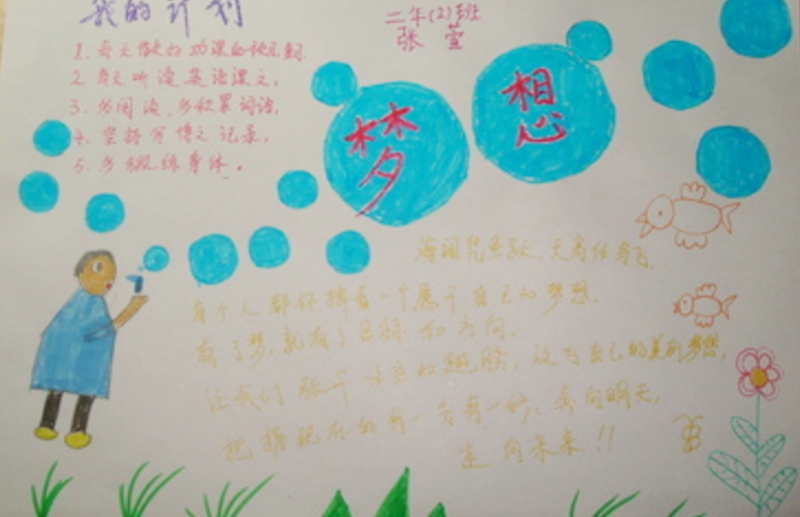 我的计划
二年(2)班
张萱
1. 每天做好功课的
2. 每天听读英语课文。
3. 多阅读,多积累词语。
4. 坚持写博文记录。
5. 多锻练身体。
梦想
海阔凭鱼跃,天高任鸟飞。
每个人都怀揣着一个属于自己的梦想,
有了梦,就有了目标和方向。
让我们张开的翅膀,为自己的美丽梦想,
把握现在的每一分每一秒,奔向明天,
走向未来!!